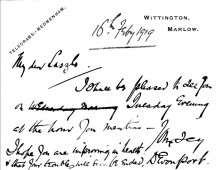 WITTINGTON,
MARLOW.
TELEGRAMS-MEDMENHAM.
16th Feby 1919
My dear Laszlo.
I shall be pleased to see you
on Tuesday Evening
at the hour you mention —
I hope you are improving in health
& that your troubles will soon be ended, Devonport.